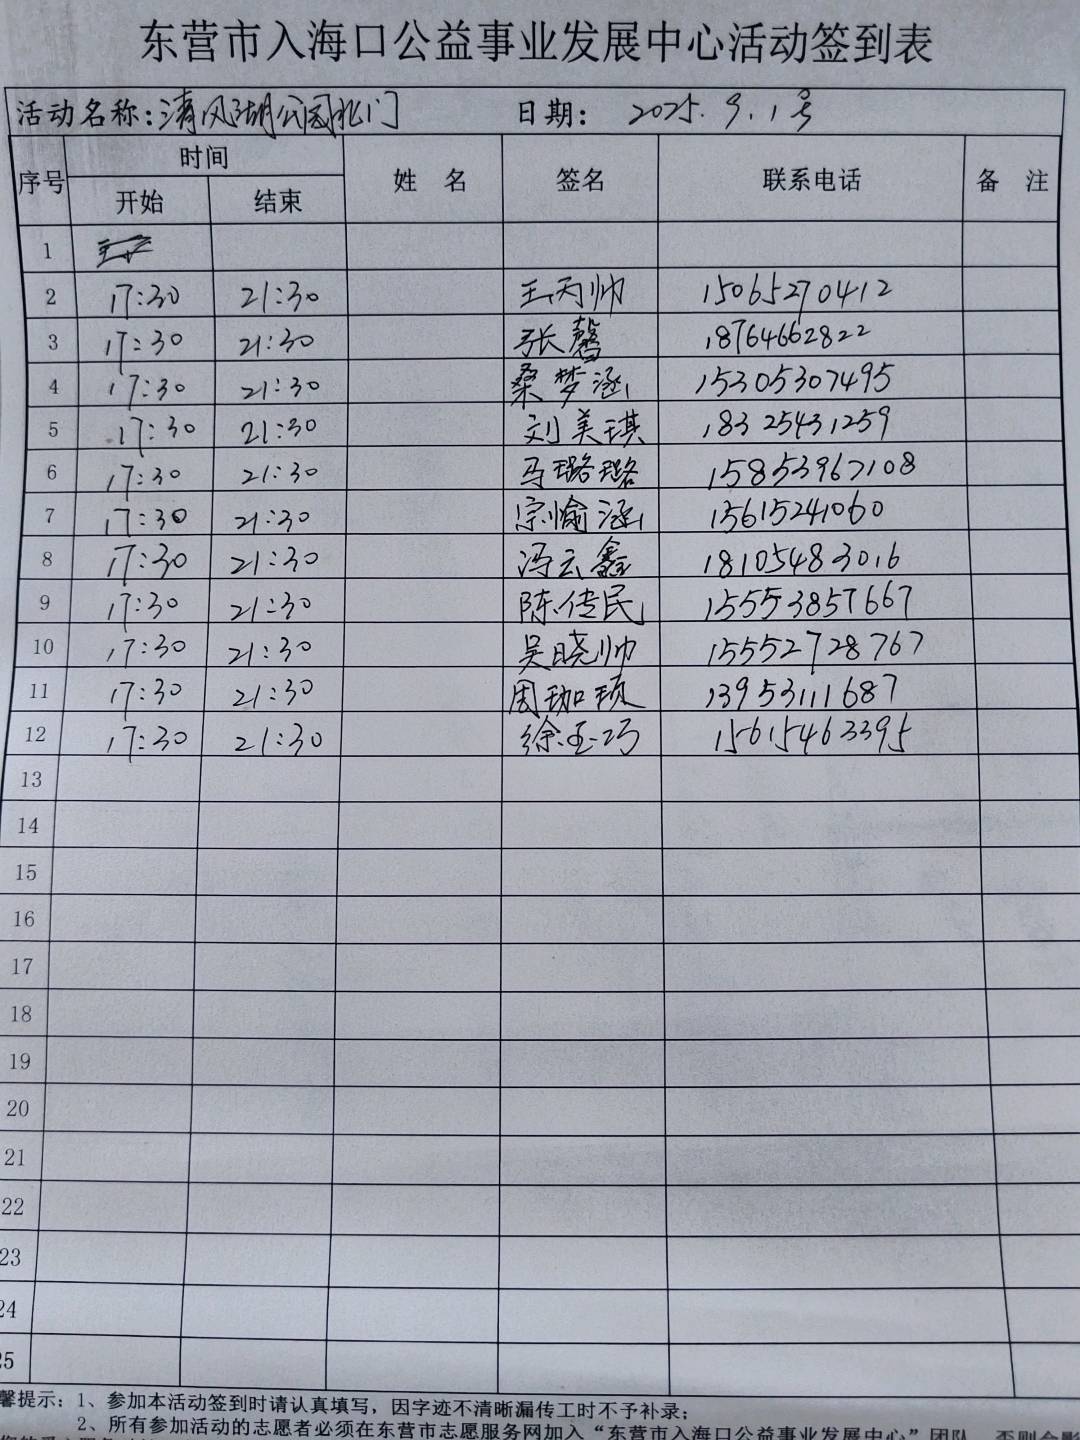 东营市入海口公益事业发展中心活动签到表
活动名称：清风湖公园北门 日期： 2025.9.1号
序号 时间 姓 名 签名 联系电话 备 注
开始 结束
1
2 17:30 21:30 王丙帅 15065270412
3 17:30 21:30 张馨 18764662822
4 17:30 21:30 桑梦涵 15305307495
5 17:30 21:30 刘美琪 18325431259
6 17:30 21:30 马璐璐 15853967108
7 17:30 21:30 宗愉涵 15615241060
8 17:30 21:30 冯云鑫 18105483016
9 17:30 21:30 陈传民 15553857667
10 17:30 21:30 吴晓帅 15552728767
11 17:30 21:30 周珈 13953111687
12 17:30 21:30 徐玉巧 15615463395
13
14
15
16
17
18
19
20
21
22
23
24
25
馨提示：1、参加本活动签到时请认真填写，因字迹不清晰漏传工时不予补录；
2、所有参加活动的志愿者必须在东营市志愿服务网加入“东营市入海口公益事业发展中心”团队，否则会影